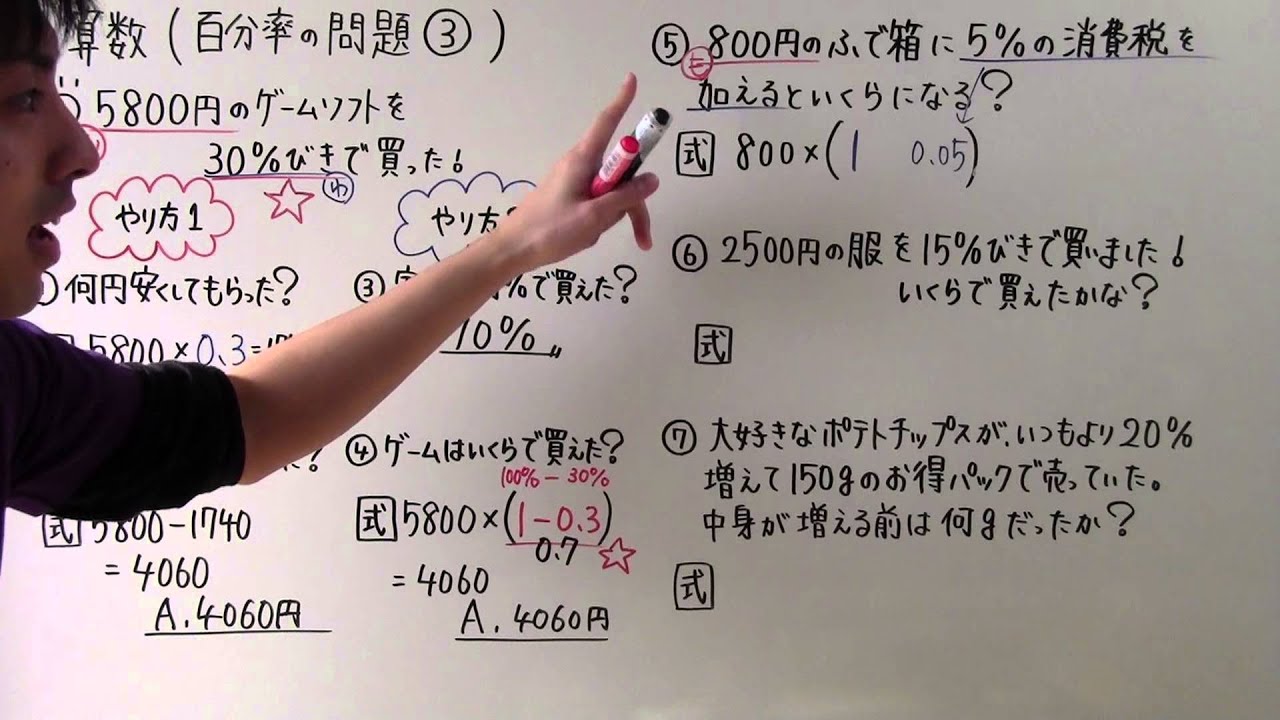 算数(百分率の問題③)
5800円のゲームソフトを
30%びきで買った!
わ
やり方1
やり方
何円安くしてもらった?
5800×0.3=17
?
式 5800-1740
=4060
A.4060円
③ %で買えた?
70%
④ゲームはいくらで買えた?
100%-30%
式 5800×(1-0.3)
0.7
=4060
A.4060円
⑤ 800円のふで箱に5%の消費税を
も
加えるといくらになる?
式 800×(1 0.05)
⑥ 2500円の服を15%びきで買いました!
いくらで買えたかな?
式
⑦ 大好きなポテトチップスが、いつもより20%
増えて150gのお得パックで売っていた。
中身が増える前は何gだったか?
式